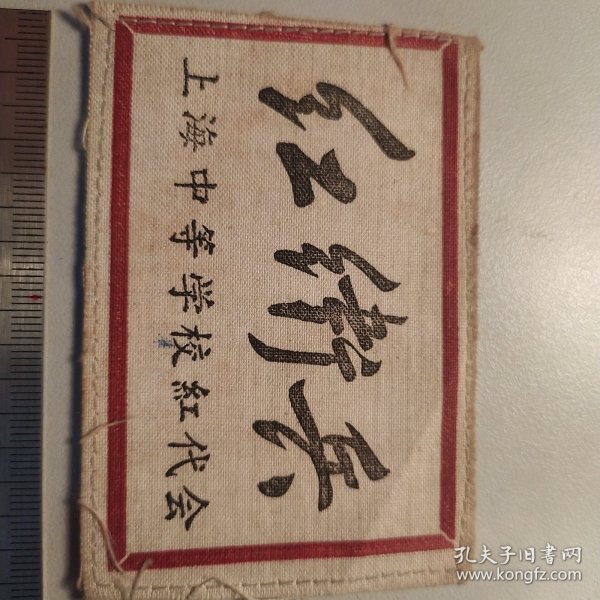 红衛兵
上海中等学校紅代会
孔夫子旧書网
www.kongfz.com